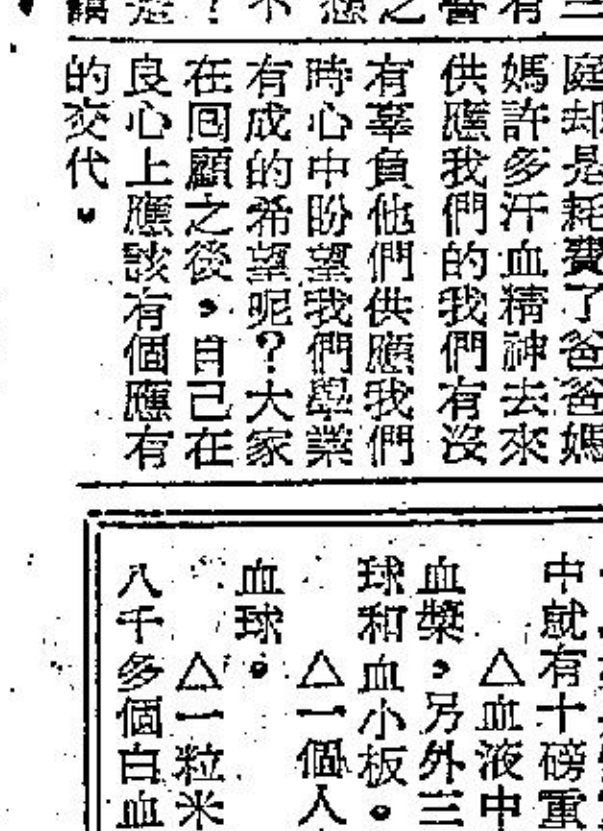 庭却是耗費了爸爸媽
媽許多汗血精神去來
供應我們的我們有沒
有辜負他們供應我們
時心中盼望我們學業
有成的希望呢？大家
在囘顧之後，自己在
良心上應該有個應有
的交代。
中就有十磅重
△血液中
血漿，另外三
球和血小板。
△一個人
血球。
△一粒米
八千多個白血